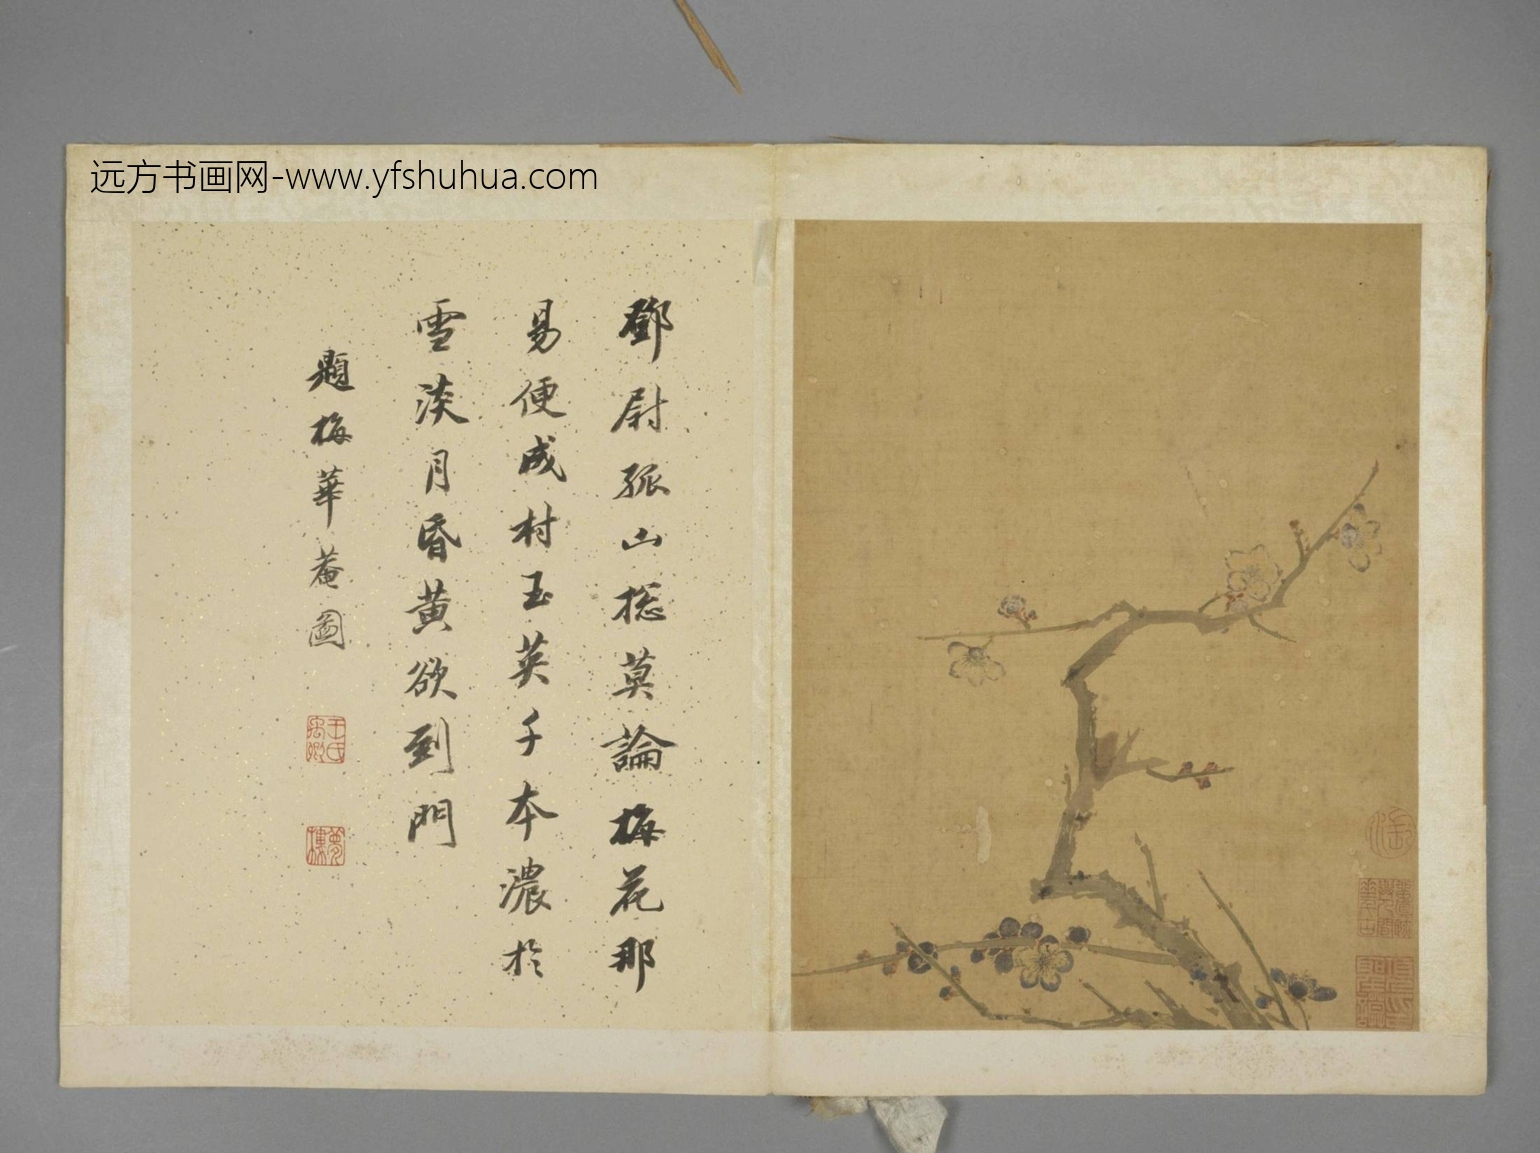 远方书画网-www.yfshuhua.com
鄧尉孤山揔莫論梅花那
易便成村玉英千本濃於
雪淡月昏黄欲到門
題梅華菴圖
王氏
夢樓